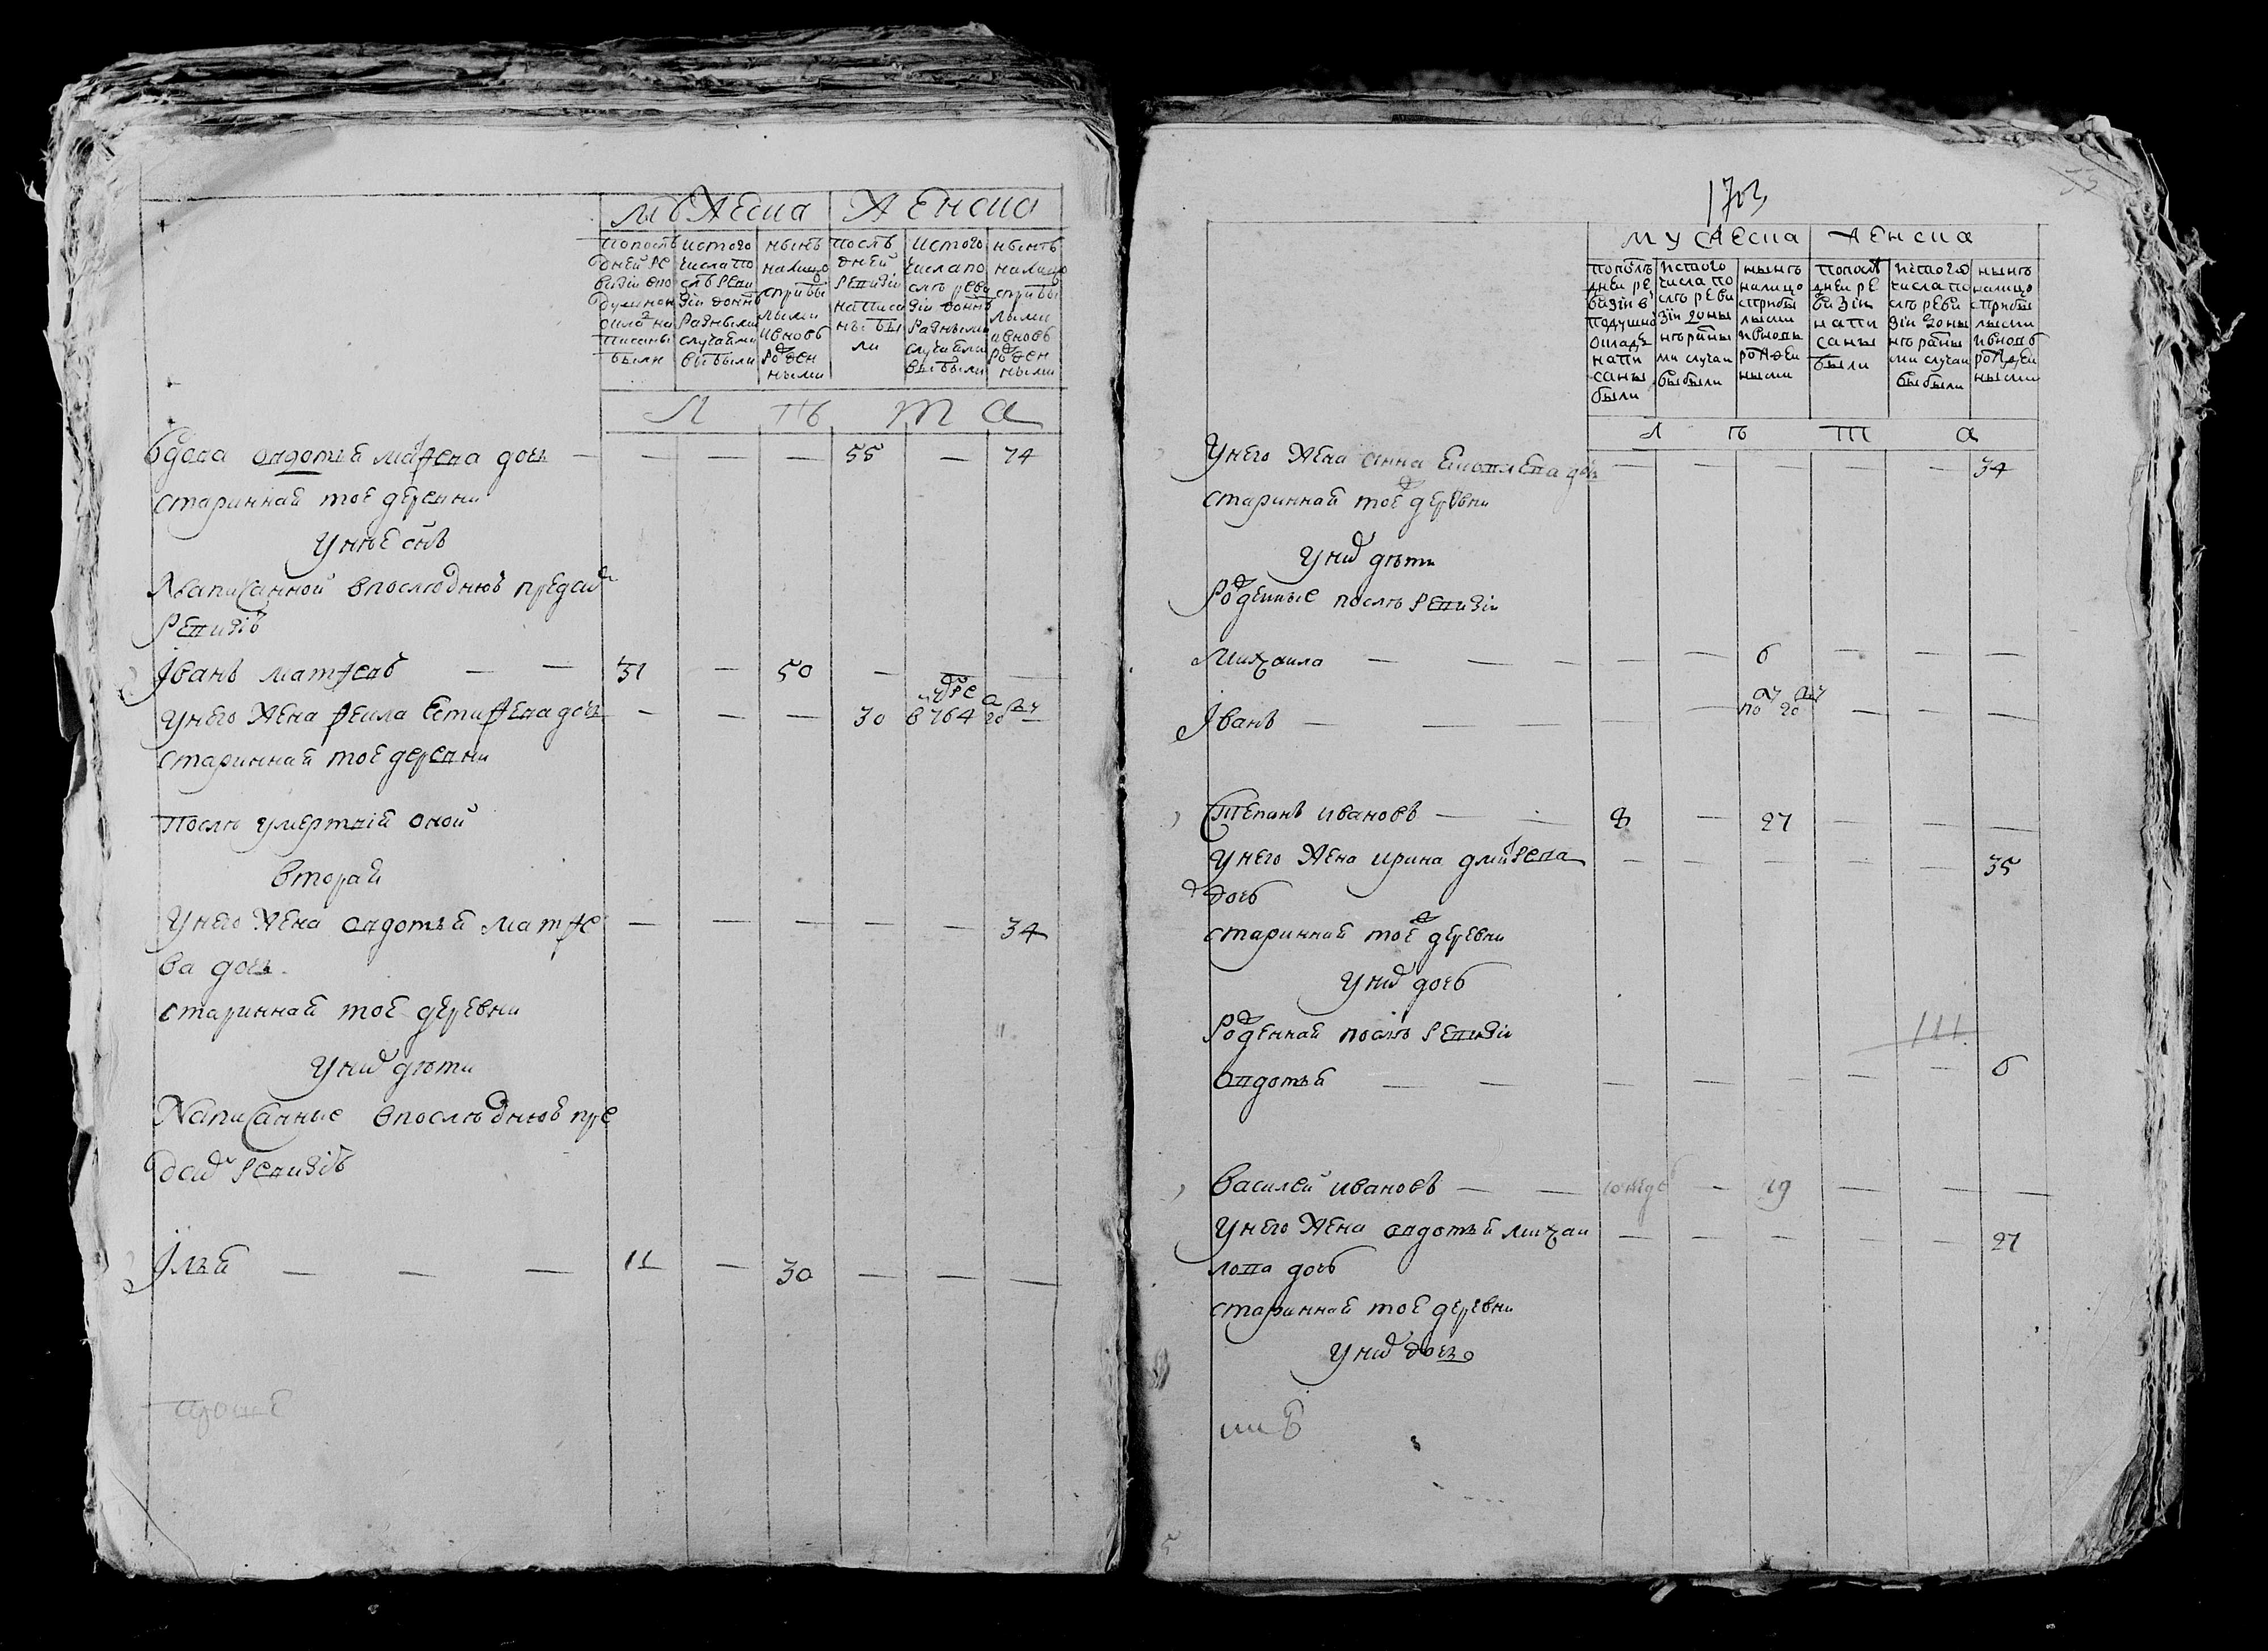 мужеска женска
попослѣ дней ревизіи вподушной окладъ написаны были
истого числа послѣ ревизіи донынѣ разными случаями выбыли
нынѣ налицо сприбылыми ивновь рожденными
послѣдней ревизіи написаны были
истого числа послѣ ревизіи донынѣ разными случаями выбыли
нынѣ налицо сприбылыми ивновь рожденными
л ѣ т а
вдова авдотья матфева дочь — — — — 55 — 74
стариннай тое деревни
унее снъ
Написанной впослѣднюю предсию
ревизію
Іванъ матфевъ — — 31 — 50 — — —
унего жена фекла естифева дочь — — — 30 в 764 20
стариннай тое деревни
послѣ умертвій оной
вторай
унего жена авдотья матфе — — — — — 34
ва дочь
стариннай тое деревни
уних дѣти
Написанные впослѣднюю пре
дсию ревизію
Ілья — — — 11 — 30 — — —
1703
мужеска женска
попослѣ дней ревизіи в подушной окладъ написаны были
истого числа послѣ ревизіи доны нѣ разными случаи выбыли
нынѣ налицо сприбылыми ивновь рожденными
попослѣ дней ревизіи написаны были
истого числа послѣ ревизіи доны нѣ разными случаи выбыли
нынѣ налицо сприбылыми ивновь рожденными
л ѣ т а
унего жена анна дочь — — — — — 34
стариннай тое деревни
уних дѣти
рожденные послѣ ревизіи
Михаила — — — — — 6 — — —
Іванъ — — — — — по 20 — — —
Степанъ ивановъ — — 8 — 27 — — —
унего жена ирина дмитрева — — — — — 35
дочь
стариннай тое деревни
уних дочь
рожденнай послѣ ревизіи
авдотья — — — — — — — 6
василей ивановъ — — — 29 — — —
унего жена авдотья михаи — — — — — 27
лова дочь
стариннай тое деревни
уних дочь